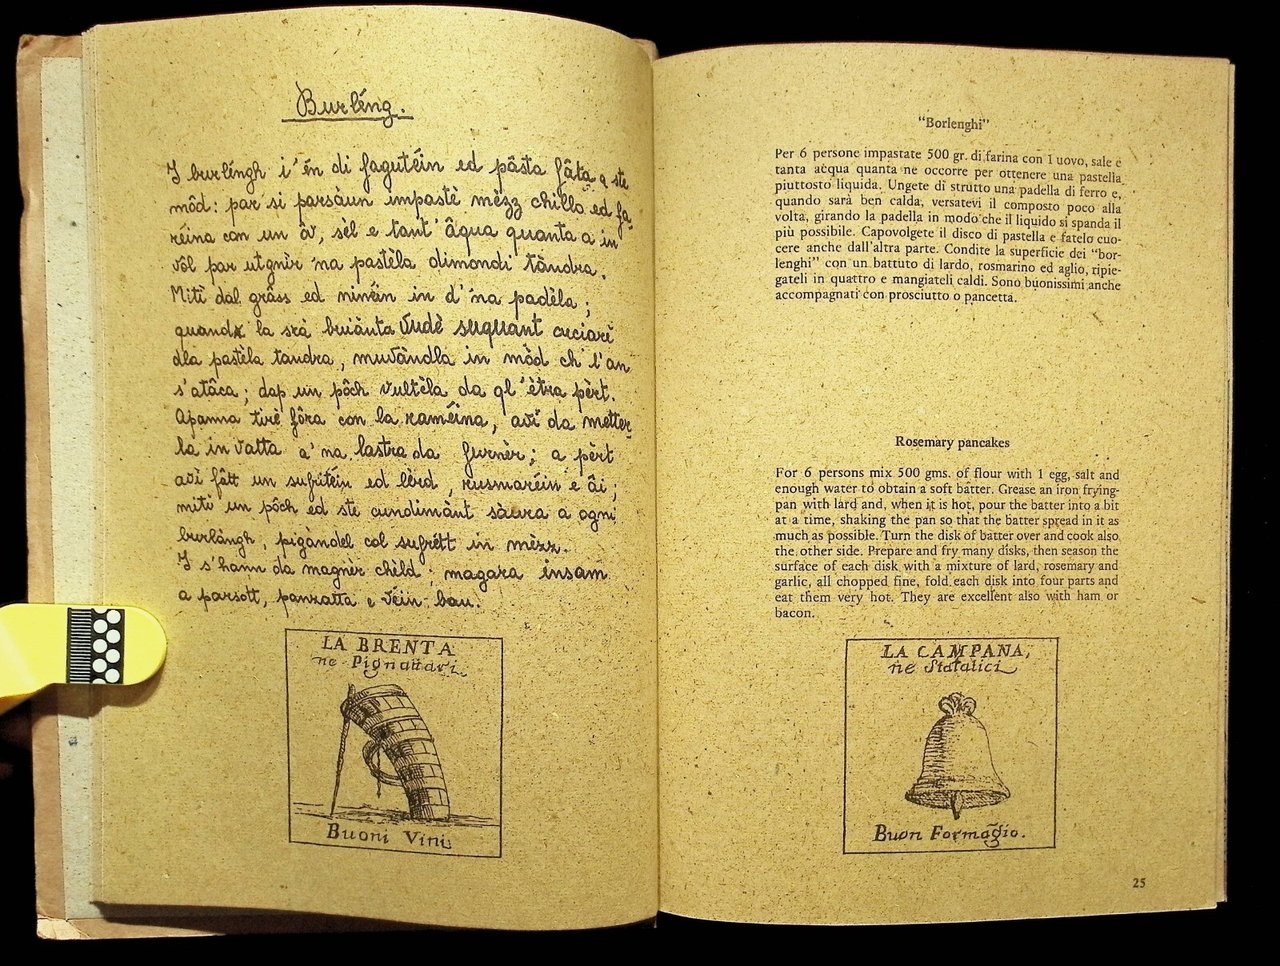 Burléng.
I burléngh i'én di fagutéin ed pâsta fâta a ste
môd: par si parsàun impastè mèzz chillo ed fa-
réina con un ôv, sèl e tant'âqua quanta a in
vôl par utgnìr 'na pastèla dimondi tàndra.
Mitì dal grâss ed ninéin in d'na padèla;
quand la srà buiànta vudè suquant cuciarì
dla pastèla tandra, muvàndla in môd ch'l'an
s'atâca; dap un pôch vultèla da ql'ètra pèrt.
Apanna tirè fôra con la raméina, avì da metter-
la in vatta a 'na lastra da furnèr; a pèrt
avì fâtt un sufritéin ed lèrd, rusmaréin e âi;
mitì un pôch ed ste cundimànt sàura a ogni
burlàngh, pigàndel col sufrétt in mèzz.
I s'hann da magnèr chèld; magara insam
a parsott, panzatta e véin bau.
LA BRENTA
ne Pignattari
Buoni Vini
"Borlenghi"
Per 6 persone impastate 500 gr. di farina con 1 uovo, sale e
tanta acqua quanta ne occorre per ottenere una pastella
piuttosto liquida. Ungete di strutto una padella di ferro e,
quando sarà ben calda, versatevi il composto poco alla
volta, girando la padella in modo che il liquido si spanda il
più possibile. Capovolgete il disco di pastella e fatelo cuo-
cere anche dall'altra parte. Condite la superficie dei "bor-
lenghi" con un battuto di lardo, rosmarino ed aglio, ripie-
gateli in quattro e mangiateli caldi. Sono buonissimi anche
accompagnati con prosciutto o pancetta.
Rosemary pancakes
For 6 persons mix 500 gms. of flour with 1 egg, salt and
enough water to obtain a soft batter. Grease an iron frying-
pan with lard and, when it is hot, pour the batter into a bit
at a time, shaking the pan so that the batter spread in it as
much as possible. Turn the disk of batter over and cook also
the other side. Prepare and fry many disks, then season the
surface of each disk with a mixture of lard, rosemary and
garlic, all chopped fine, fold each disk into four parts and
eat them very hot. They are excellent also with ham or
bacon.
LA CAMPANA,
ne Stafalici
Buon Formagio.
25